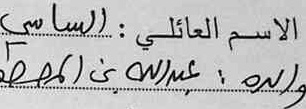 الاسم العائلي : الساسي
والده : عبدالله بن المصطفى